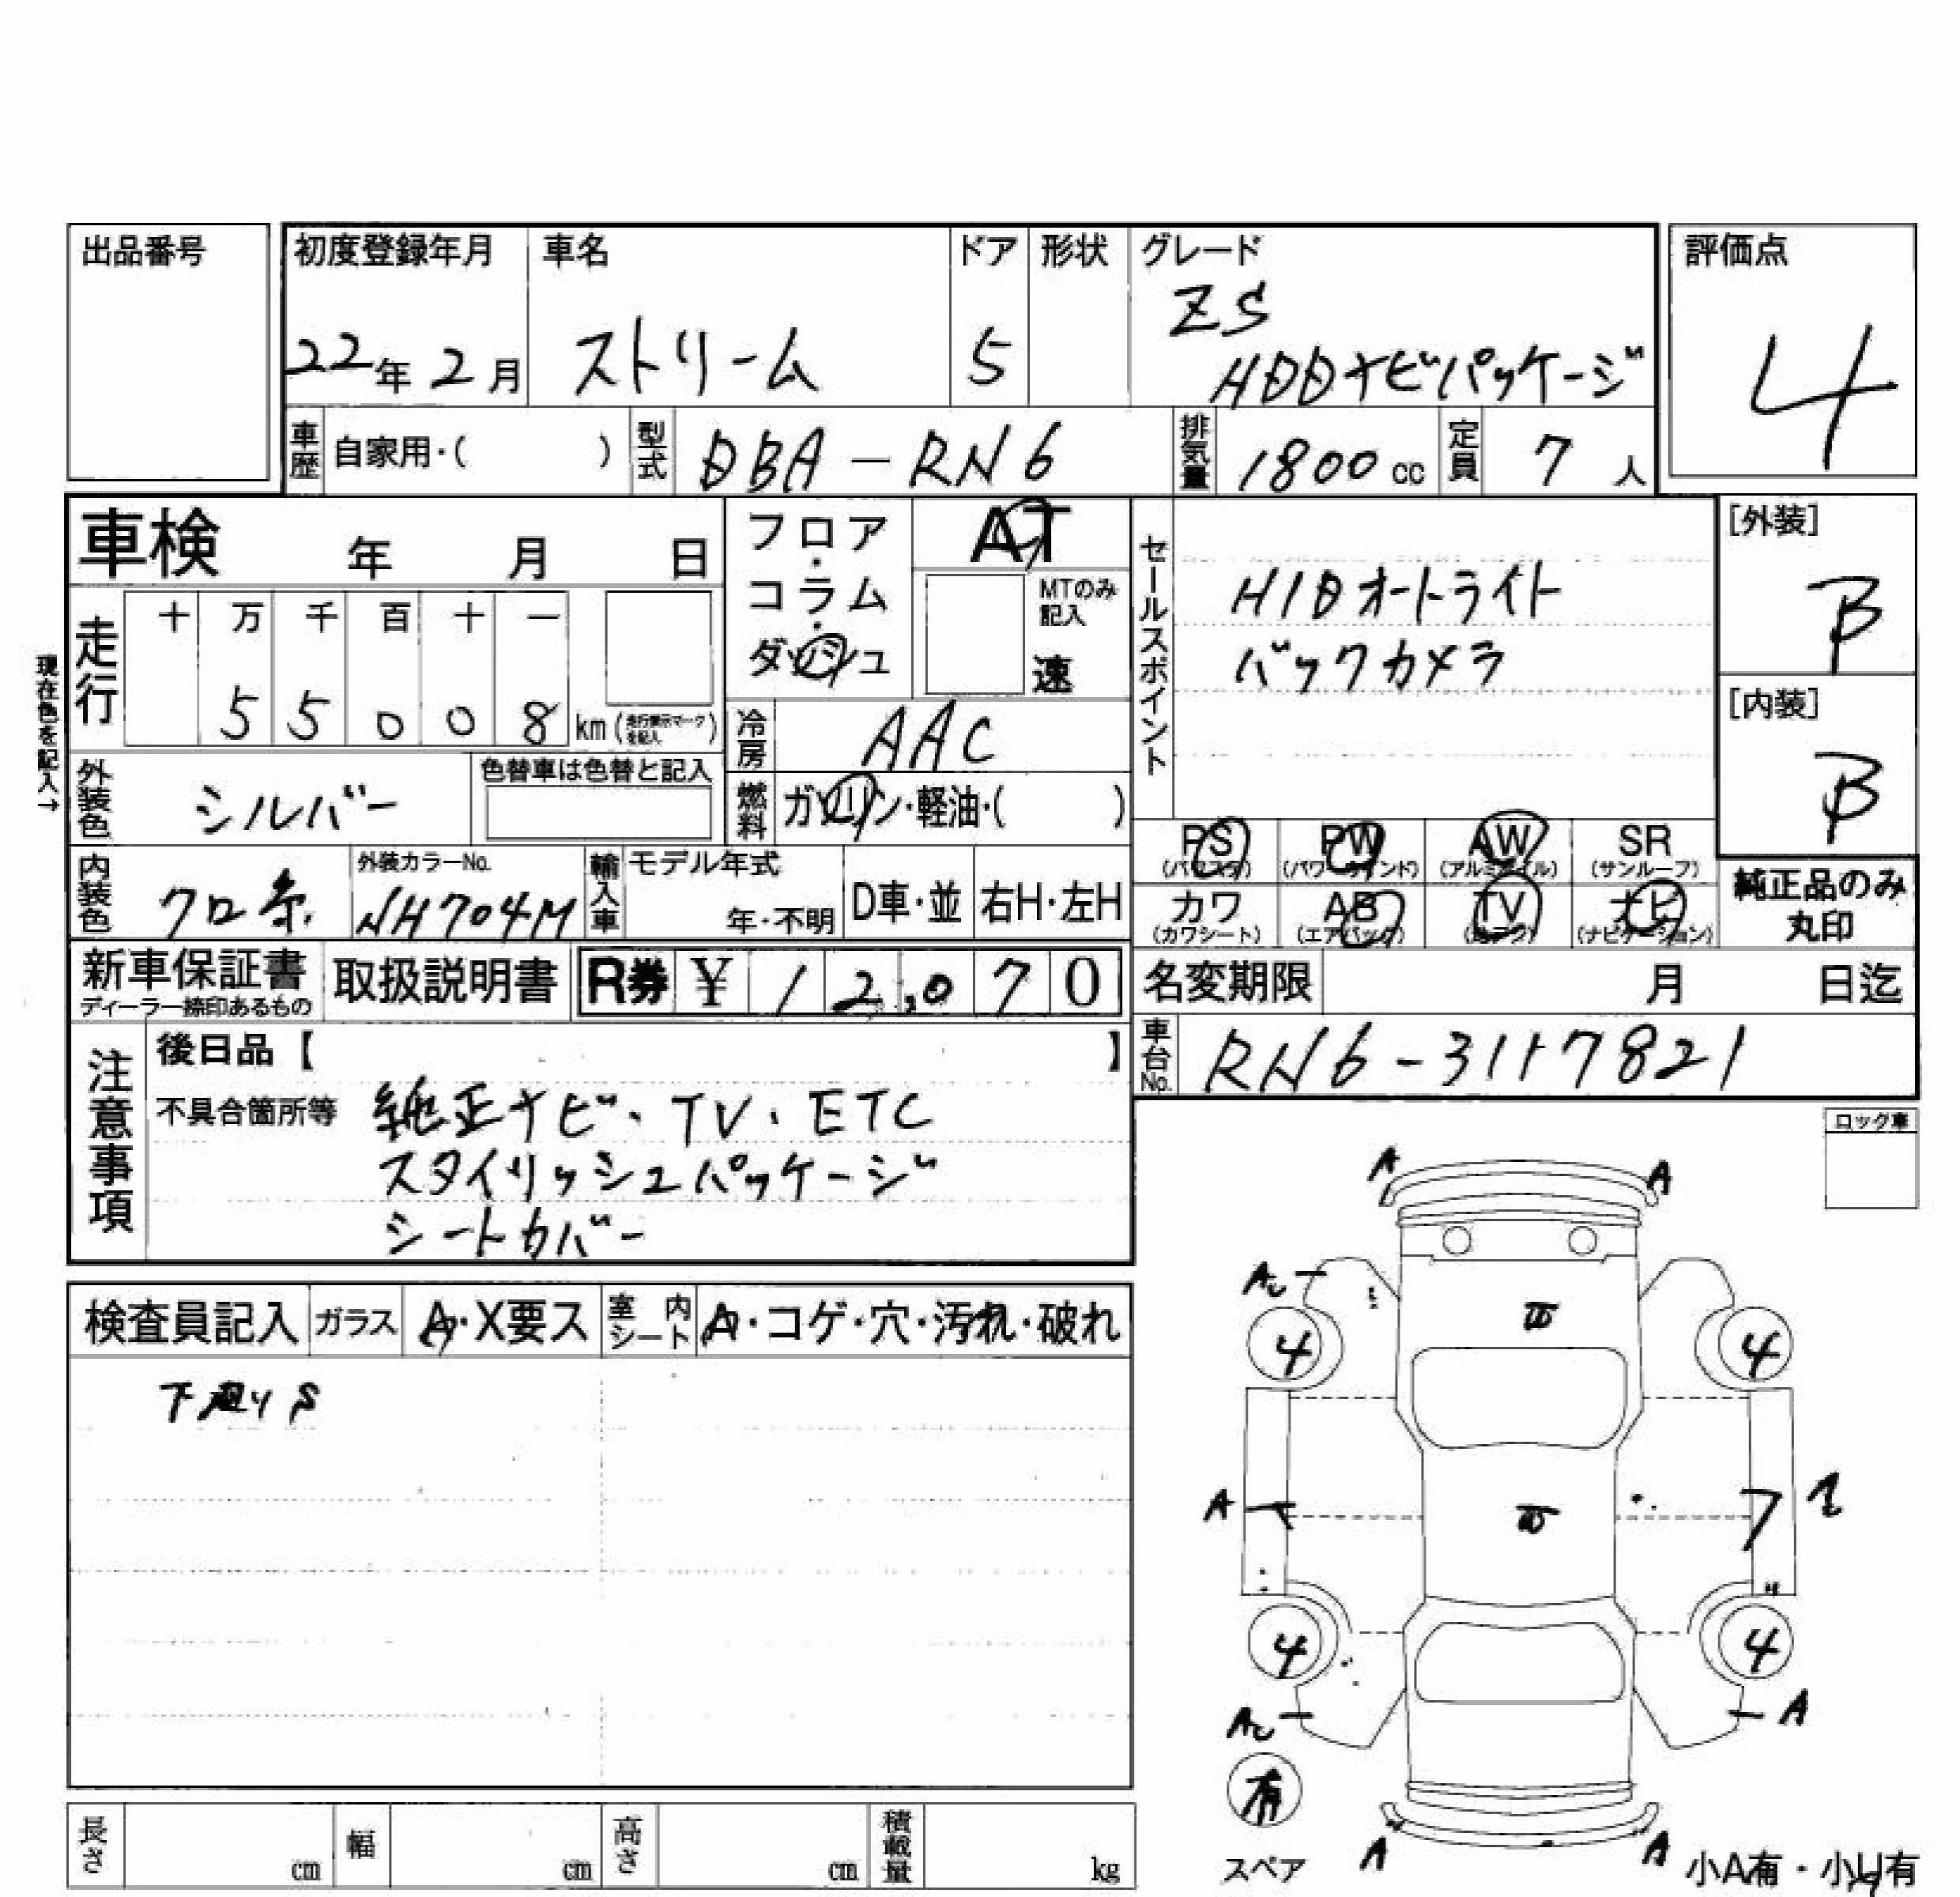 出品番号
初度登録年月 車名 ドア 形状 グレード
22年2月 ストリーム 5 ZS
HDDナビパッケージ
評価点
4
車歴 自家用・( ) 型式 DBA-RN6 排気量 1800cc 定員 7人
車検 年 月 日
フロア・コラム・ダッシュ
AT
MTのみ記入
速
セールスポイント
HIDオートライト
バックカメラ
[外装]
B
[内装]
B
現在色を記入→
走行 十 万 千 百 十 一
5 5 0 0 8 km (走行表示マークを記入)
冷房 AAC
外装色 シルバー 色替車は色替と記入
燃料 ガソリン・軽油・( )
PS (パワステ) PW (パワーウインド) AW (アルミホイル) SR (サンルーフ)
カワ (カワシート) AB (エアバック) TV (テレビ) ナビ (ナビゲーション)
純正品のみ丸印
内装色 クロ系 外装カラーNo. NH704M 輸入車 モデル年式 年・不明 D車・並 右H・左H
新車保証書 ディーラー捺印あるもの 取扱説明書 R券 ¥ 12,070
名変期限 月 日迄
車台No. RN6-3117821
注意事項
後日品【 】
不具合箇所等 純正ナビ・TV・ETC
スタイリッシュパッケージ
シートカバー
ロック車
検査員記入 ガラス A・X要ス 室内シート A・コゲ・穴・汚れ・破れ
下廻りS
A A
A
4 4
A
4 4
A
有
スペア
A A
小A有・小U有
長さ cm 幅 cm 高さ cm 積載量 kg